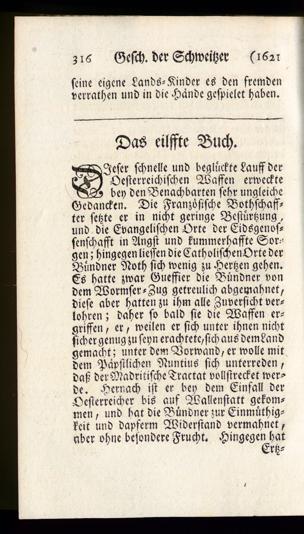 316 Gesch. der Schweitzer (1621
seine eigene Lands-Kinder es den fremden
verrathen und in die Hände gespielet haben.
Das eilffte Buch.
Dieser schnelle und beglückte Lauff der
Oesterreichischen Waffen erweckte
bey den Benachbarten sehr ungleiche
Gedancken. Die Französische Bothschaff-
ter setzte er in nicht geringe Bestürtzung,
und die Evangelischen Orte der Eidsgenos-
senschafft in Angst und kummerhaffte Sor-
gen; hingegen liessen die Catholischen Orte der
Bündner Noth sich wenig zu Hertzen gehen.
Es hatte zwar Gueffier die Bündner von
dem Wormser-Zug getreulich abgemahnet,
diese aber hatten zu ihm alle Zuversicht ver-
lohren; daher so bald sie die Waffen er-
griffen, er, weilen er sich unter ihnen nicht
sicher genug zu seyn erachtete, sich aus dem Land
gemacht; unter dem Vorwand, er wolle mit
dem Päpstlichen Nuntius sich unterreden,
daß der Madritische Tractat vollstrecket wer-
de. Hernach ist er bey dem Einfall der
Oesterreicher bis auf Wallenstatt gekom-
men, und hat die Bündner zur Einmüthig-
keit und dapferm Widerstand vermahnet,
aber ohne besondere Frucht. Hingegen hat
Ertz-